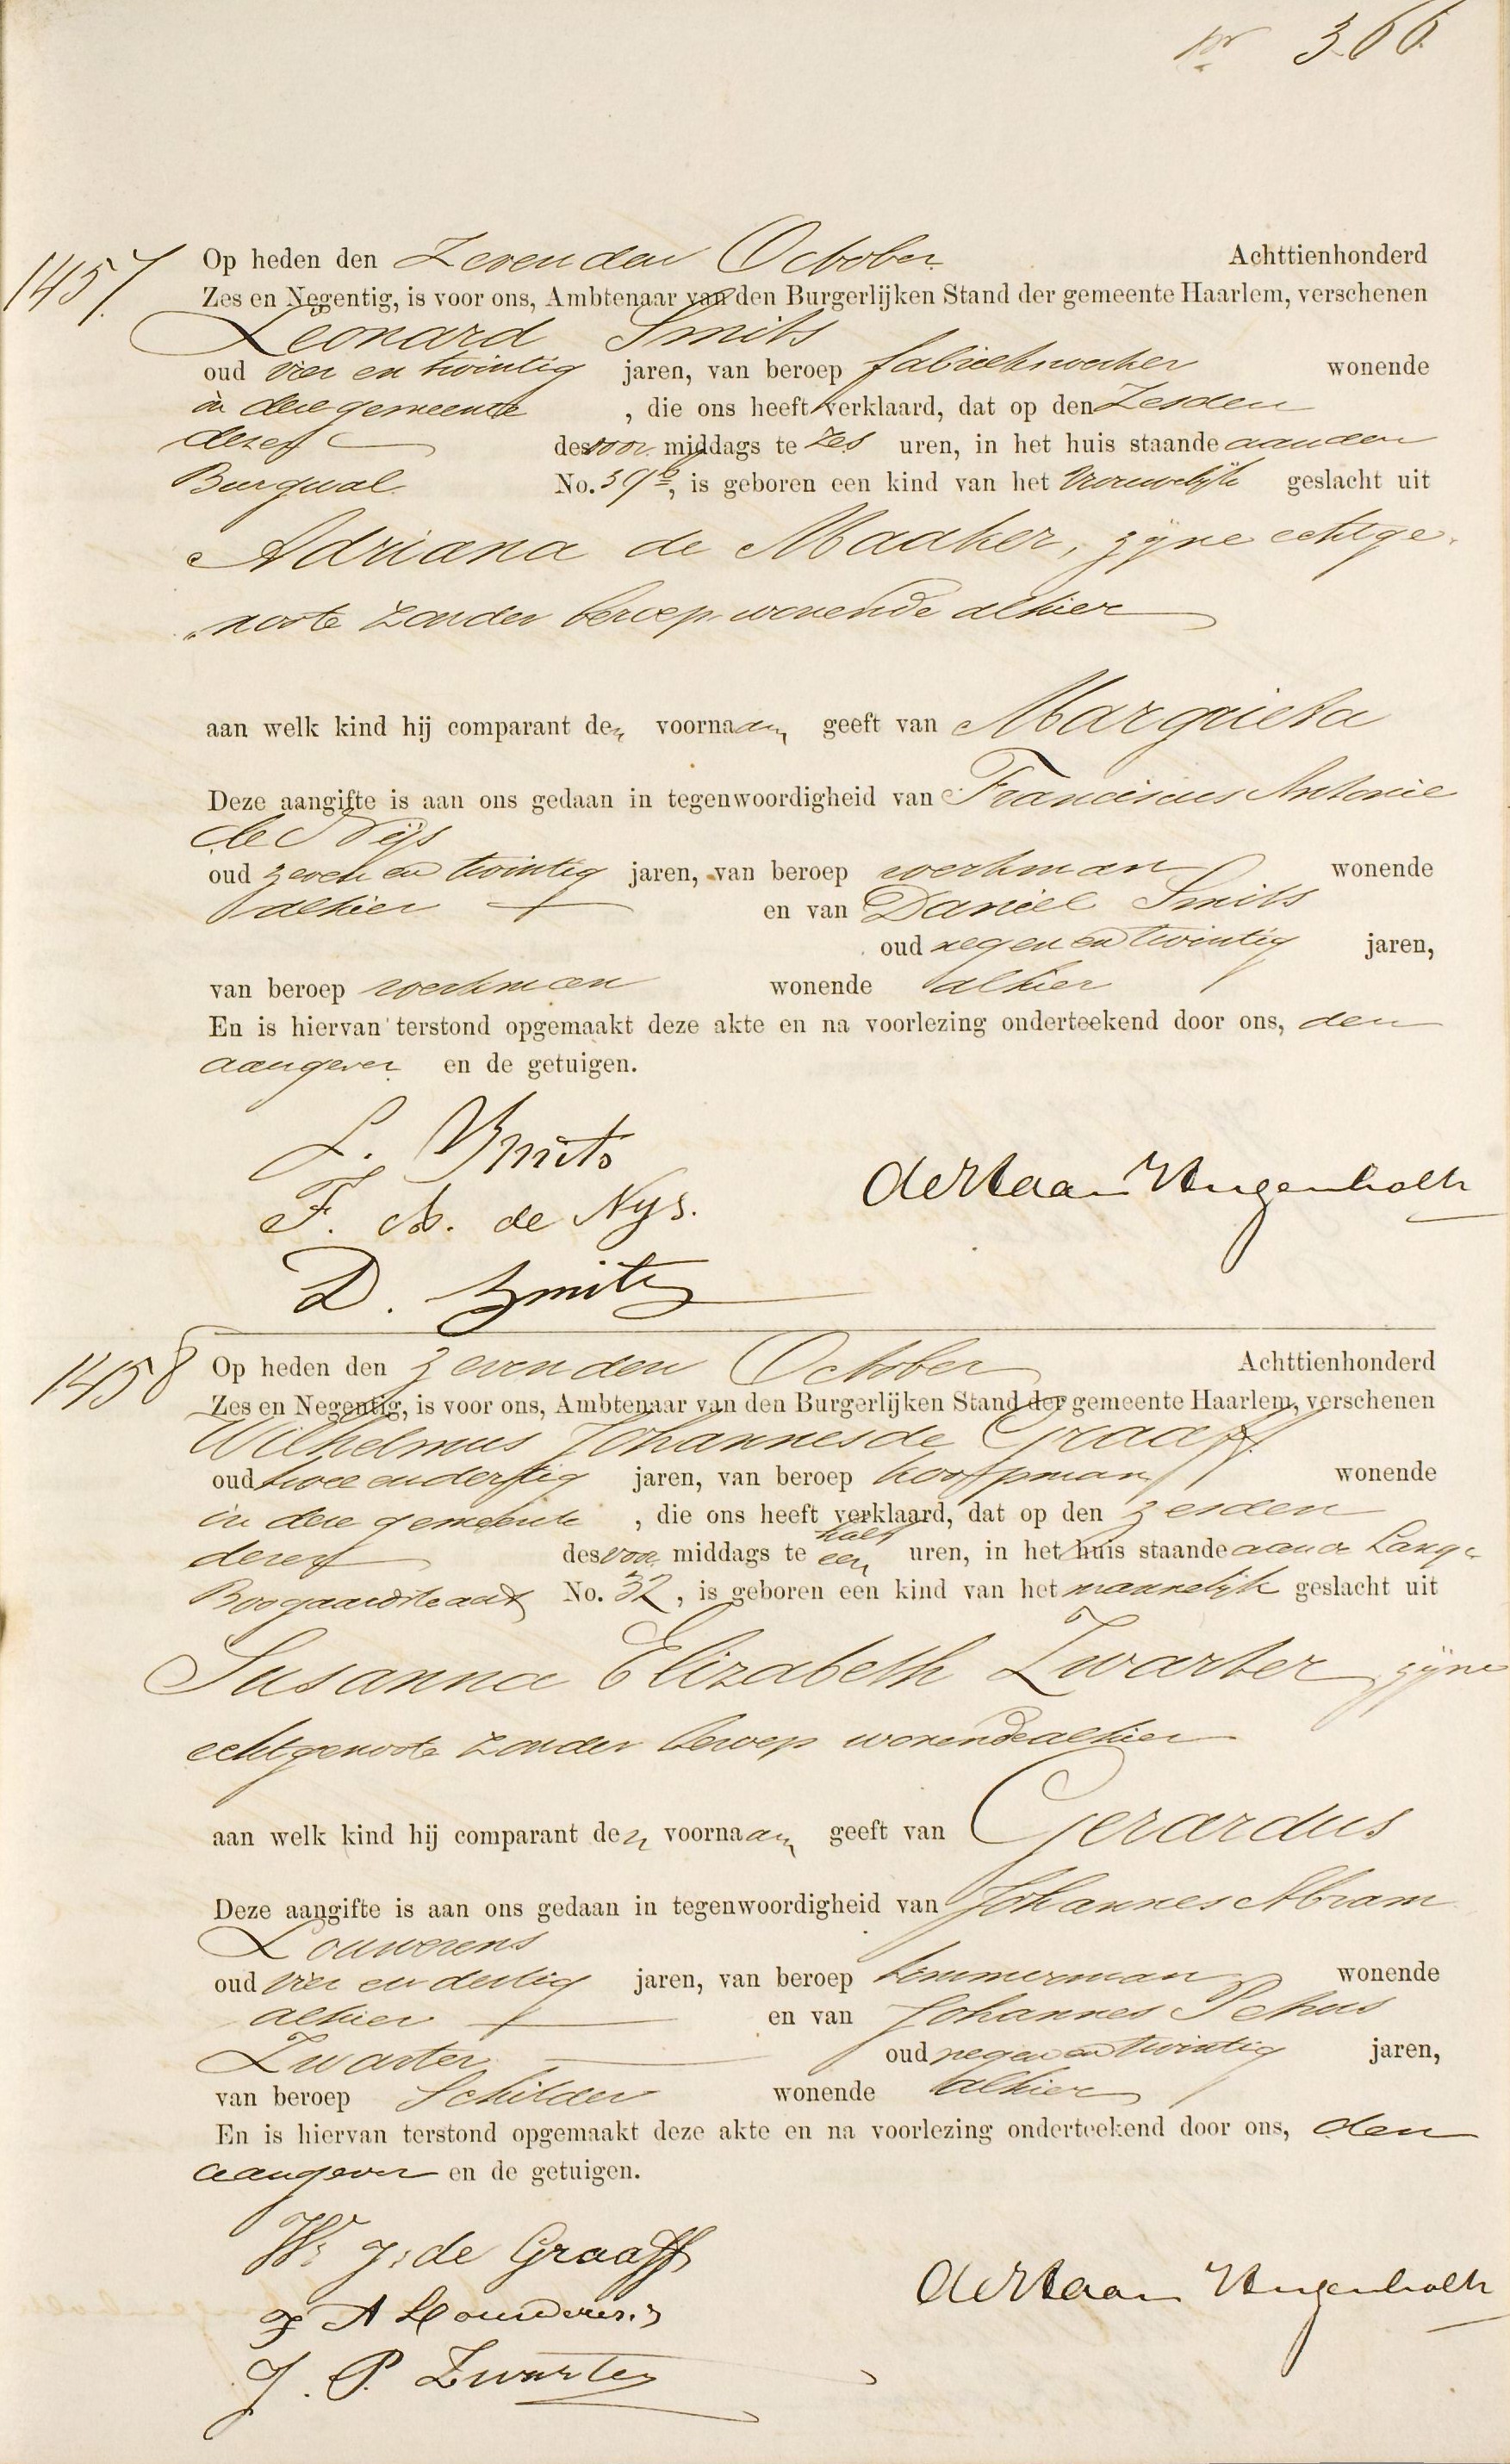 366
1457.
Op heden den Zevenden October Achttienhonderd
Zes en Negentig, is voor ons, Ambtenaar van den Burgerlijken Stand der gemeente Haarlem, verschenen
Leonard Smits
oud vier en twintig jaren, van beroep fabriekwerker wonende
in deze gemeente , die ons heeft verklaard, dat op den Zesden
dezer des voor middags te zes uren, in het huis staande aan den
Burgwal No. 39 b, is geboren een kind van het Vrouwelijk geslacht uit
Adriana de Maaker, zijne echtge-
noote zonder beroep wonende alhier
aan welk kind hij comparant den voornaam geeft van Margrieta
Deze aangifte is aan ons gedaan in tegenwoordigheid van Franciscus Antonie
de Nijs
oud zeven en twintig jaren, van beroep werkman wonende
alhier en van Daniel Smits
oud negen en twintig jaren,
van beroep werkman wonende alhier
En is hiervan terstond opgemaakt deze akte en na voorlezing onderteekend door ons, den
aangever en de getuigen.
L. Smits
F. A. de Nys.
de Haan Hugenholtz
D. Smits
1458
Op heden den zevenden October Achttienhonderd
Zes en Negentig, is voor ons, Ambtenaar van den Burgerlijken Stand der gemeente Haarlem, verschenen
Wilhelmus Johannes de Graaff
oud twee en dertig jaren, van beroep koopman wonende
in deze gemeente , die ons heeft verklaard, dat op den zesden
dezer des voor middags te half een uren, in het huis staande aan de Lange
Boogaardstraat No. 32, is geboren een kind van het mannelijk geslacht uit
Susanna Elizabeth Zwarter, zijne
echtgenoote zonder beroep wonende alhier
aan welk kind hij comparant den voornaam geeft van Gerardus
Deze aangifte is aan ons gedaan in tegenwoordigheid van Johannes Abram
Louwerens
oud vier en dertig jaren, van beroep timmerman wonende
alhier en van Johannes Petrus
Zwarter oud negen en twintig jaren,
van beroep Schilder wonende alhier
En is hiervan terstond opgemaakt deze akte en na voorlezing onderteekend door ons, den
aangever en de getuigen.
W. J. de Graaff
J A Louwerens
de Haan Hugenholtz
J. P. Zwarter